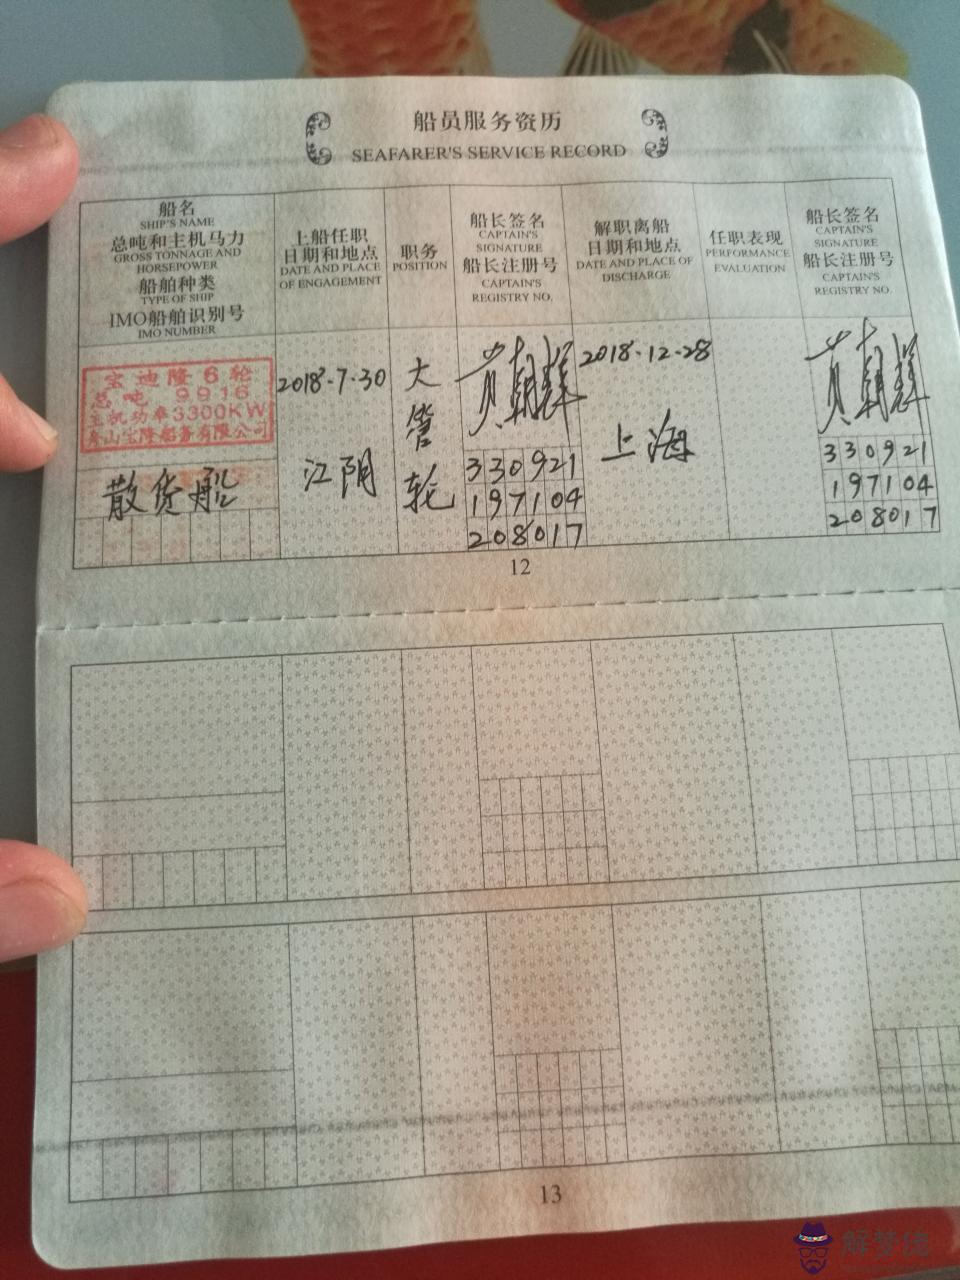 船员服务资历
SEAFARER'S SERVICE RECORD
船名
SHIP'S NAME
总吨和主机马力
GROSS TONNAGE AND
HORSEPOWER
船舶种类
TYPE OF SHIP
IMO船舶识别号
IMO NUMBER
上船任职
日期和地点
DATE AND PLACE
OF ENGAGEMENT
职务
POSITION
船长签名
CAPTAIN'S
SIGNATURE
船长注册号
CAPTAIN'S
REGISTRY NO.
解职离船
日期和地点
DATE AND PLACE OF
DISCHARGE
任职表现
PERFORMANCE
EVALUATION
船长签名
CAPTAIN'S
SIGNATURE
船长注册号
CAPTAIN'S
REGISTRY NO.
宝迪隆6轮
总吨 9916
主机功率3300KW
舟山宝隆船务有限公司
散货船
2018.7.30
江阴
大
管
轮
330921
197104
208017
2018.12.28
上海
330921
197104
208017
12
13
解梦佬